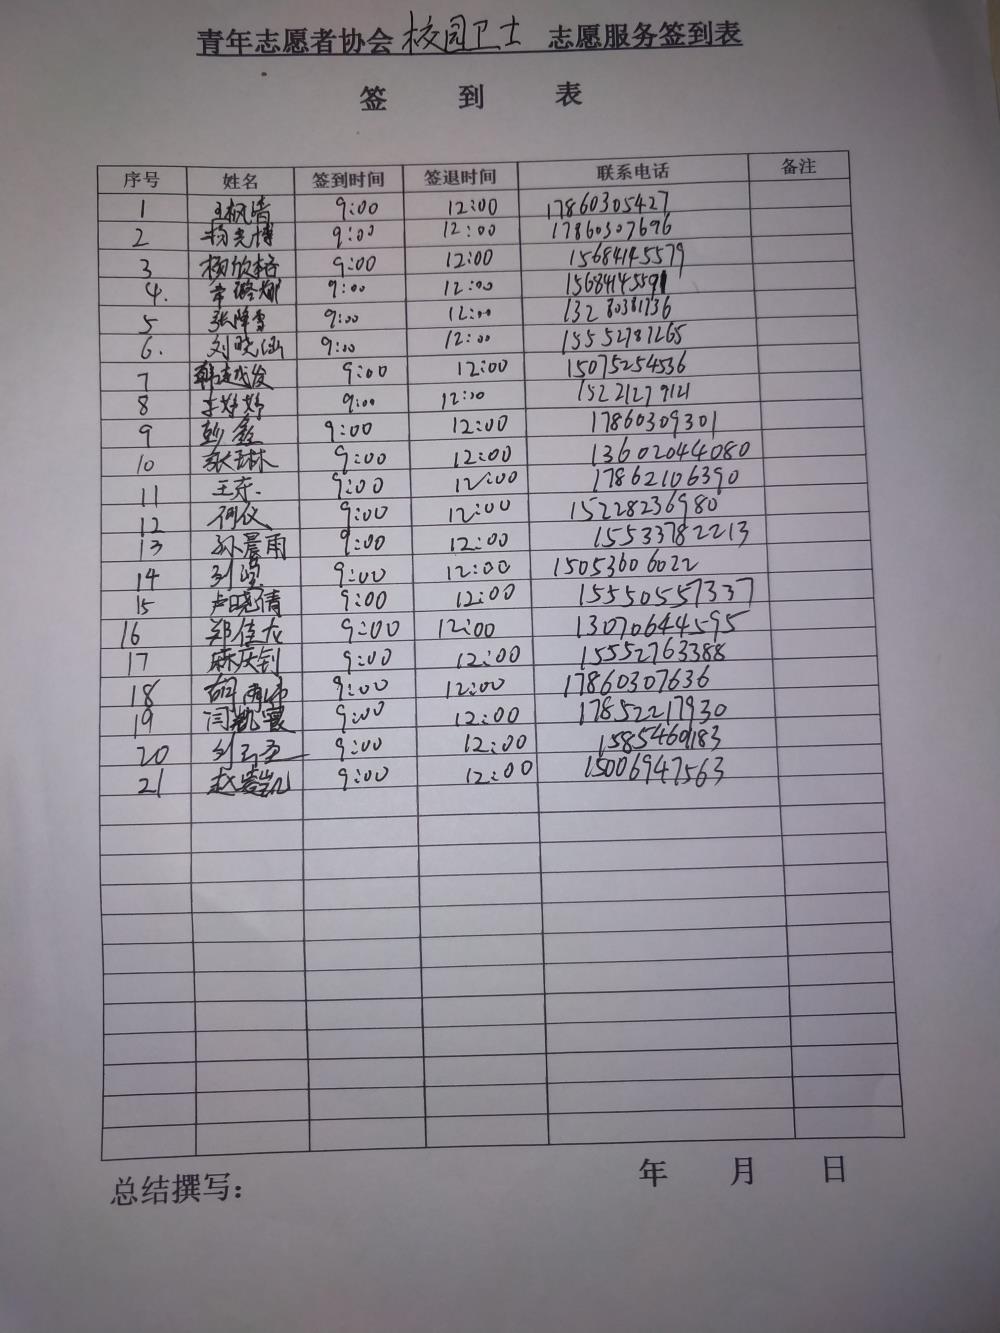 青年志愿者协会校园卫士 志愿服务签到表
签 到 表
序号 姓名 签到时间 签退时间 联系电话 备注
1 王枫清 9:00 12:00 17860305427
2 杨光博 9:00 12:00 17860307696
3 杨欣格 9:00 12:00 15684145579
4. 9:00 12:00 15684145591
5 张降雪 9:00 12:00 13280381736
6. 刘晓涵 9:00 12:00 15552787265
7 9:00 12:00 15075254536
8 李婷婷 9:00 12:00 15221279121
9 彭鑫 9:00 12:00 17860309301
10 张琳 9:00 12:00 13602044080
11 王东. 9:00 12:00 17862106390
12 何仪 9:00 12:00 15228236980
13 孙晨雨 9:00 12:00 15533782213
14 刘莹 9:00 12:00 15053606022
15 卢晓倩 9:00 12:00 15550557337
16 郑佳龙 9:00 12:00 13070644595
17 麻庆钊 9:00 12:00 15552763388
18 胡雨沛 9:00 12:00 17860307636
19 闫凯寰 9:00 12:00 17852217930
20 9:00 12:00 15854601183
21 赵凯 9:00 12:00 15006947563
总结撰写： 年 月 日